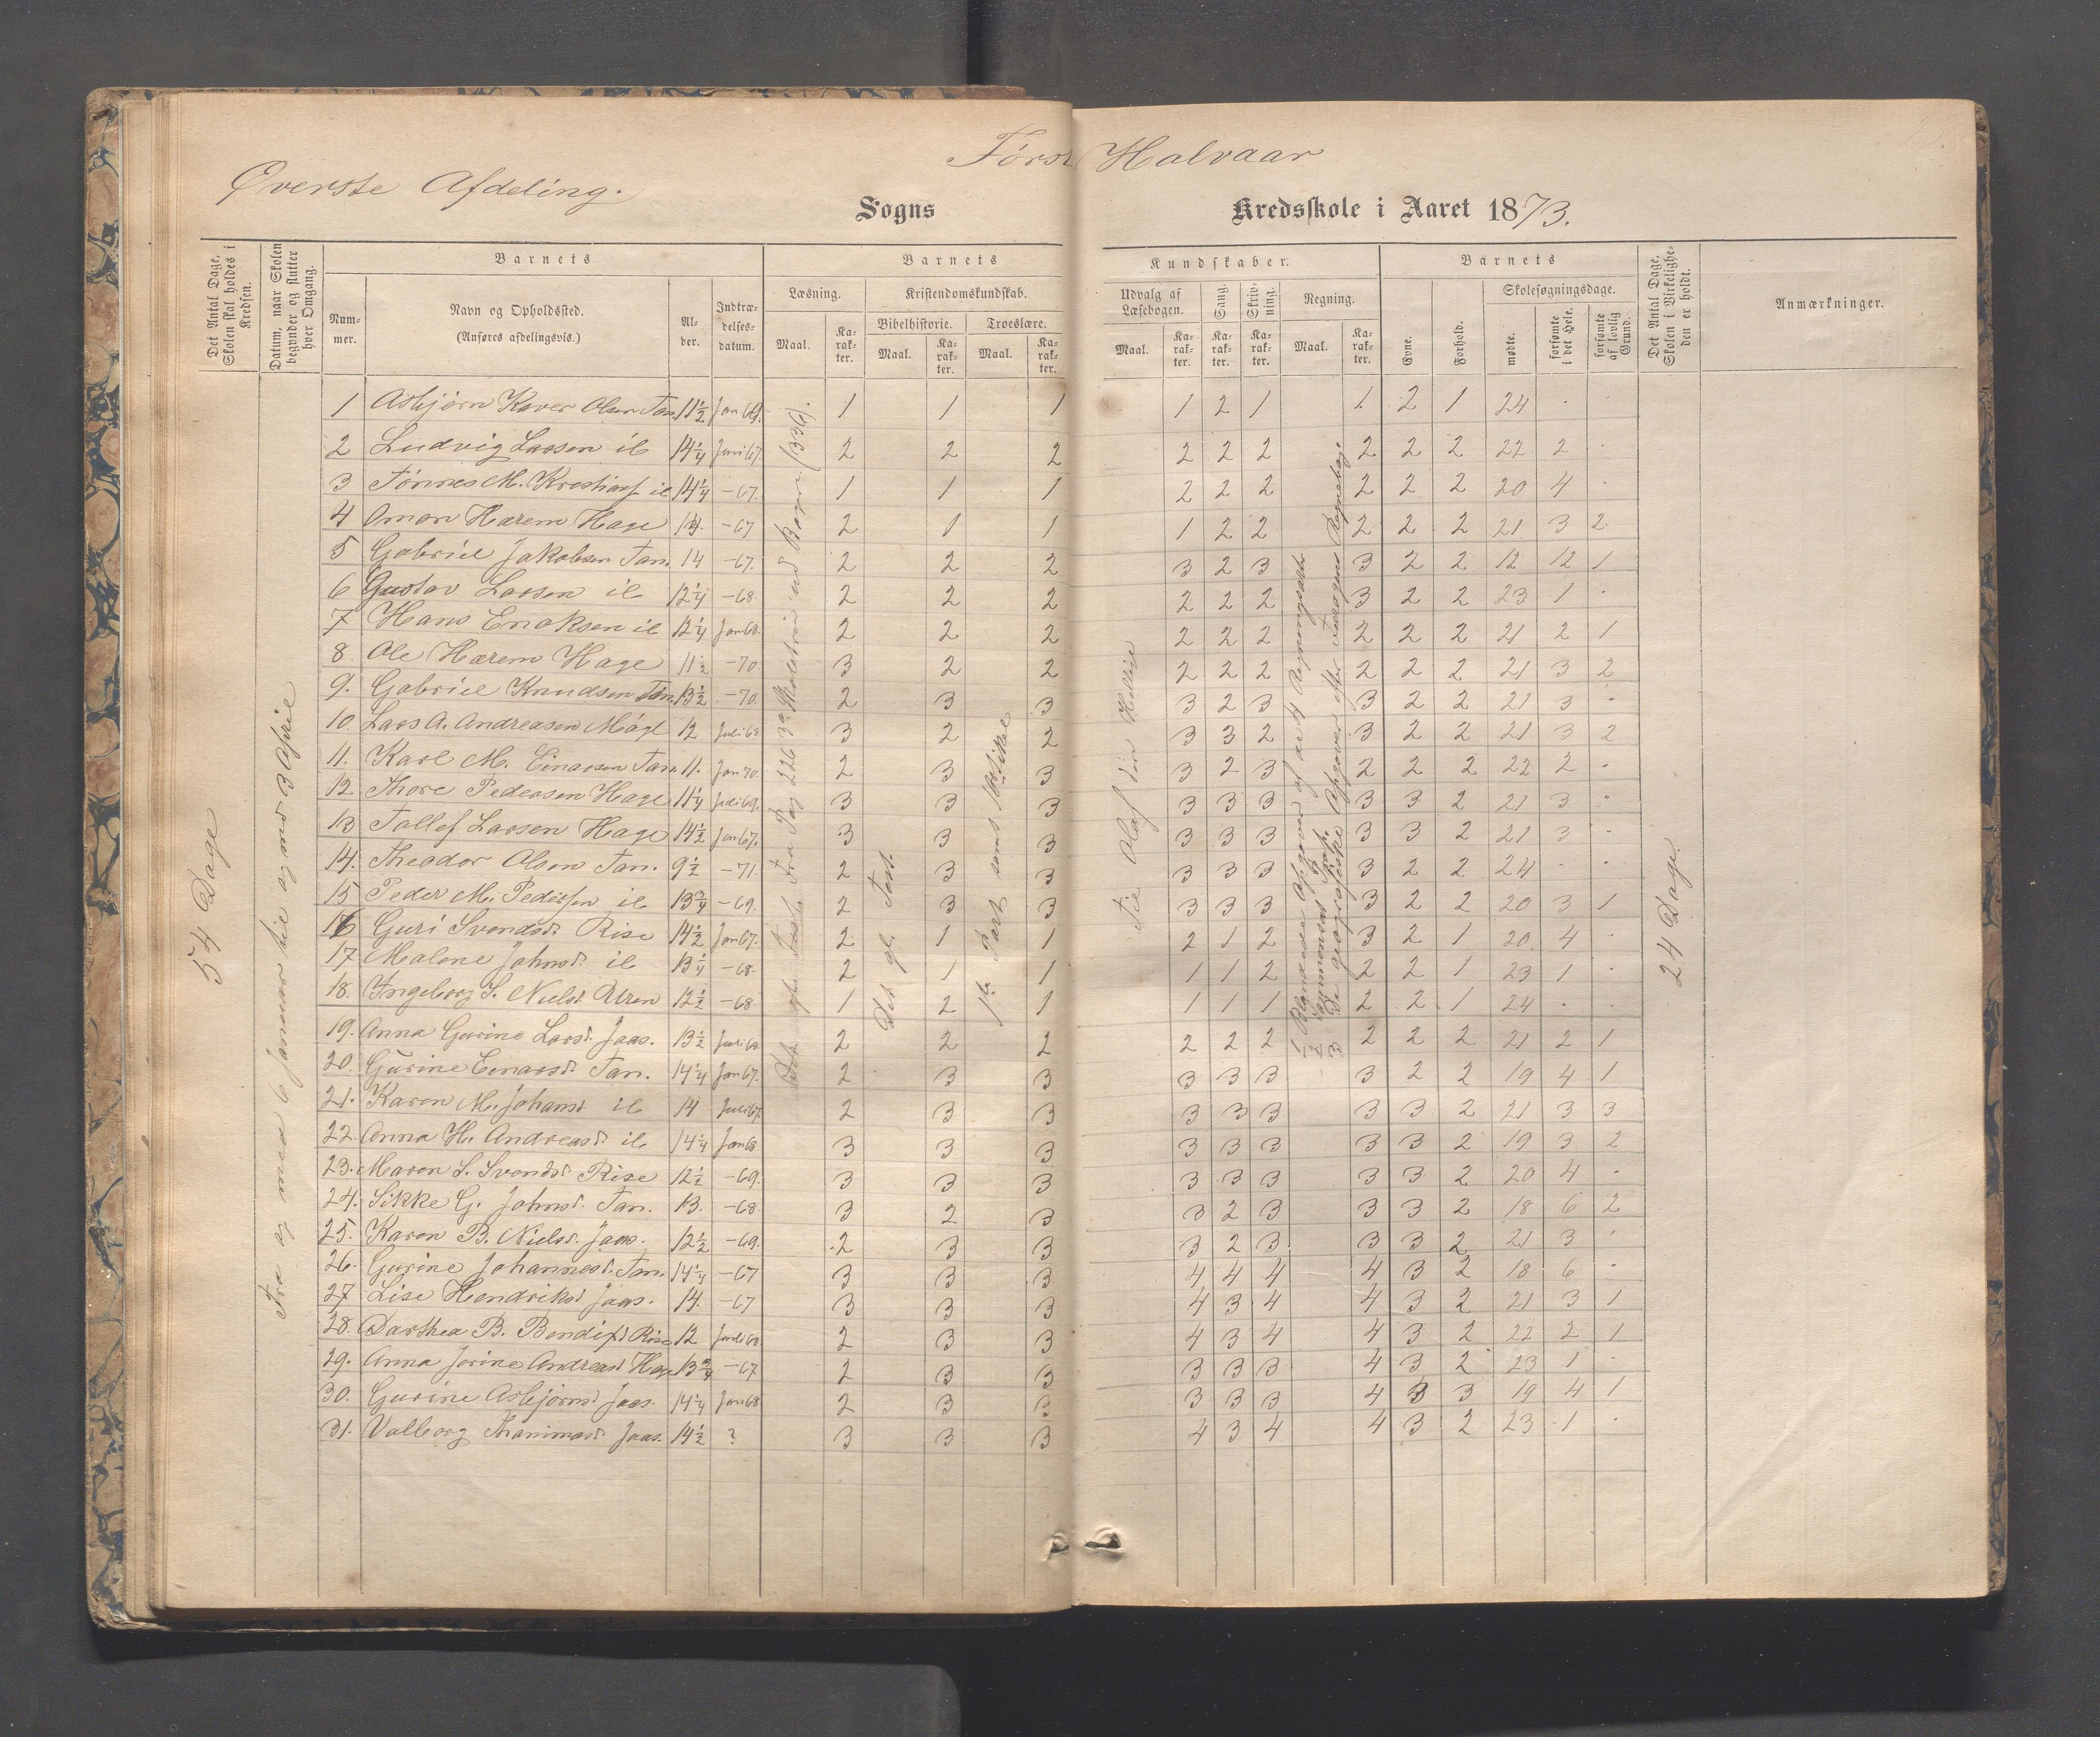 Først Halvaar
Øverste Afdeling.
Sogns Kredsskole i Aaret 1873.
Det Antal Dage, Skolen skal holdes i Kredsen.
Datum, naar Skolen begynder og slutter hver Omgang.
Barnets
Num-mer.
Navn og Opholdssted.
(Anføres afdelingsvis.)
Al-der.
Indtræ-delses-datum.
Barnets Kundskaber.
Læsning. Maal. Ka-rak-ter.
Kristendomskundskab.
Bibelhistorie. Maal. Ka-rak-ter.
Troeslære. Maal. Ka-rak-ter.
Udvalg af Læsebogen. Maal. Ka-rak-ter.
Sang. Ka-rak-ter.
Skriv-ning. Ka-rak-ter.
Regning. Maal. Ka-rak-ter.
Barnets
Evne.
Forhold.
Skolesøgningsdage.
mødte.
forsømte i det Hele.
forsømte af lovlig Grund.
Det Antal Dage, Skolen i Virkelighe-den er holdt.
Anmærkninger.
54 Dage
Fra og med 6 Januar til og med 3 April
1 Asbjørn Kaver Olsen Tan. 11½ Jan 69. 1 1 1 1 2 1 1. 2 1 24 . .
2 Ludvig Larsen il 14¼ Juni 67. 2 2 2 2 2 2 2 2 2 22 2 .
3 Tønnes M. il 14¼ -67. 1 1 1 2 2 2 2 2 2 20 4 .
4 Omon Hærem Hage 14. -67 2 1 1 1 2 2 2 2 2 21 3 2
5 Gabriel Jakobsen Tan. 14 -67. 2 2 2 3 2 3 3 2 2 12 12 1
6 Gustav Larsen il 12¼ -68. 2 2 2 2 2 2 3 2 2 23 1 .
7 Hans Enoksen il 12¼ Jan 68. 2 2 2 2 2 2 2 2 2 21 2 1
8. Ole Hærem Hage 11½ -70 3 2 2 2 2 2 2 2 2 21 3 2
9. Gabriel Knudsen Tan. 13½ -70. 2 3 3 3 2 3 3 2 2 21 3 .
10. Lars A. Andreasen 12 Juli 68 3 2 2 3 3 2 3 2 2 21 3 2
11. Karl M. Einarsen Tan. 11. Jan 70. 2 3 3 3 2 3 2 2 2 22 2 .
12 Thore Pedersen Hage 11¼ Juli 69. 3 3 3 3 3 3 3 3 2 21 3 .
13 Tallef Larsen Hage 14½ Jan 67. 3 3 3 3 3 3 3 3 2 21 3 .
14. Theodor Olsen Tan. 9½ -71. 2 3 3 3 3 3 3 2 2 24 . .
15 Peder M. Pedersen il 13¾ -69. 2 3 3 3 3 3 3 2 2 20 3 1
16 Guri Svendsd. Rise 14½ Jan 67. 2 1 1 2 1 2 3 2 1 20 4 .
17 Malene Johnsd. il 13¼ -68. 2 1 1 1 1 2 2 2 1 23 1 .
18. Ingeborg S. Nielsd. 12½ -68. 1 2 1 1 1 1 2 2 1 24 . .
19. Anna Gurine Larsd. Jaas. 13½ Juli 68 2 2 2 2 2 2 2 2 2 21 2 1
20. Gurine Einarsd. Tan. 14¼ Jan 67. 2 3 3 3 3 3 3 2 2 19 4 1
21. Karen M. Johansd il 14 Juli 67. 2 3 3 3 3 3 3 3 2 21 3 3
22. Anna H. Andreasd. il 14¼ Jan 68. 3 3 3 3 3 3 3 3 2 19 3 2
23. Maren S. Svendsd. Rise 12½ -69. 3 3 3 3 3 3 3 3 2 20 4 .
24. Sikke G. Johnsd. Tan. 13. -68. 3 2 3 3 2 3 3 3 2 18 6 2
25. Karen B. Nielsd. Jaas. 12½ -69. 2 3 3 3 2 3 3 3 2 21 3 .
26. Gurine Johannesd. Tan. 14¼ -67 3 3 3 4 4 4 4 3 2 18 6 .
27 Lise Hendriksd Jaas. 14. -67 3 3 3 4 3 4 4 3 2 21 3 1
28. Darthea B. Bendixd Rise 12 Juli 68 2 3 3 4 3 4 4 3 2 22 2 1
29. Anna Jorine Andreasd Hage 13¾ -67 2 3 3 3 3 3 4 3 2 23 1 .
30. Gurine Asbjørnsd Jaas. 14¼ Jan 68 2 3 3 3 3 3 4 3 3 19 4 1
31. Valborg Jaas. 14½ ? 3 3 3 4 3 4 4 3 2 23 1 .
Fra Pag 226 ud Bogen (336).
Det gl. Test.
1ste Part samt
Til Olaf den Hellige
1 Blandede Opgaver af de 4 Regningsarter
2 Sammensat
3 De geografiske Opgaver efter Regnebog
24 Dage.